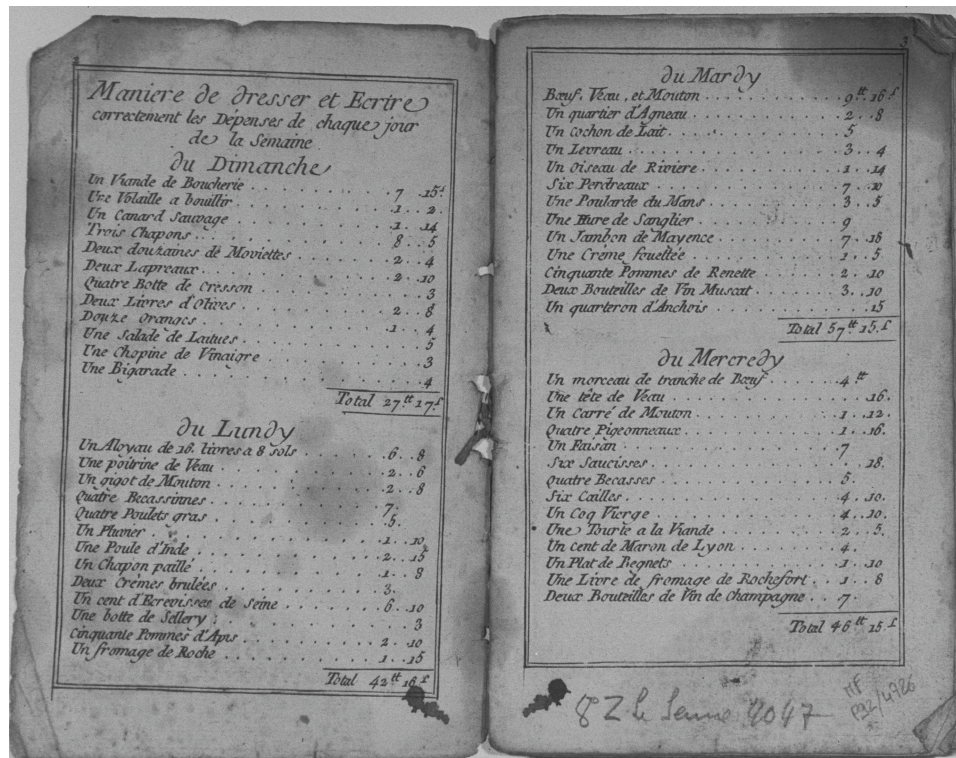 2
Maniere de dresser et Ecrire
correctement les Dépenses de chaque jour
de la Semaine
du Dimanche
Un Viande de Boucherie . . 7 . . 15ˢ
Une Volaille a bouillir . . 1 . . 2
Un Canard Sauvage . . 1 . . 14
Trois Chapons . . 8 . . 5
Deux douzaines de Moviettes . . 2 . . 4
Deux Lapreaux . . 2 . . 10
Quatre Botte de Cresson . . 3
Deux Livres d'Olives . . 2 . . 8
Douze Oranges . . 1 . . 4
Une Salade de Laitues . . 5
Une Chopine de Vinaigre . . 3
Une Bigarade . . 4
Total 27 ᵗᵗ 17 ˢ
du Lundy
Un Aloyau de 16. livres a 8 sols . . 6 . . 8
Une poitrine de Veau . . 2 . . 6
Un gigot de Mouton . . 2 . . 8
Quatre Becassinnes . . 7
Quatre Poulets gras . . 5
Un Pluvier . . 1 . . 10
Une Poule d'Inde . . 2 . . 15
Un Chapon paillé . . 1 . . 8
Deux Crémes brulées . . 3
Un cent d'Ecrevisses de Seine . . 6 . . 10
Une botte de Sellery . . 3
Cinquante Pommes d'Apis . . 2 . . 10
Un fromage de Roche . . 1 . . 15
Total 42 ᵗᵗ 16 ˢ
3
du Mardy
Bœuf, Veau, et Mouton . . 9 ᵗᵗ 16 ˢ
Un quartier d'Agneau . . 2 . . 8
Un Cochon de Lait . . 5
Un Levreau . . 3 . . 4
Un Oiseau de Riviere . . 1 . . 14
Six Perdreaux . . 7 . . 10
Une Poularde du Mans . . 3 . . 5
Une Hure de Sanglier . . 9
Un Jambon de Mayence . . 7 . . 18
Une Créme fouettée . . 1 . . 5
Cinquante Pommes de Renette . . 2 . . 10
Deux Bouteilles de Vin Muscat . . 3 . . 10
Un quarteron d'Anchois . . 15
Total 57 ᵗᵗ 15 ˢ
du Mercredy
Un morceau de tranche de Bœuf . . 4 ᵗᵗ
Une tête de Veau . . 16
Un Carré de Mouton . . 1 . . 12
Quatre Pigeonneaux . . 1 . . 16
Un Faisan . . 7
Six Saucisses . . 18
Quatre Becasses . . 5
Six Cailles . . 4 . . 10
Un Coq Vierge . . 4 . . 10
Une Tourte a la Viande . . 2 . . 5
Un cent de Maron de Lyon . . 4
Un Plat de Begnets . . 1 . . 10
Une Livre de fromage de Rochefort . . 1 . . 8
Deux Bouteilles de Vin de Champagne . . 7
Total 46 ᵗᵗ 15 ˢ
8 Z le Senne 4047
MF
P92/4726